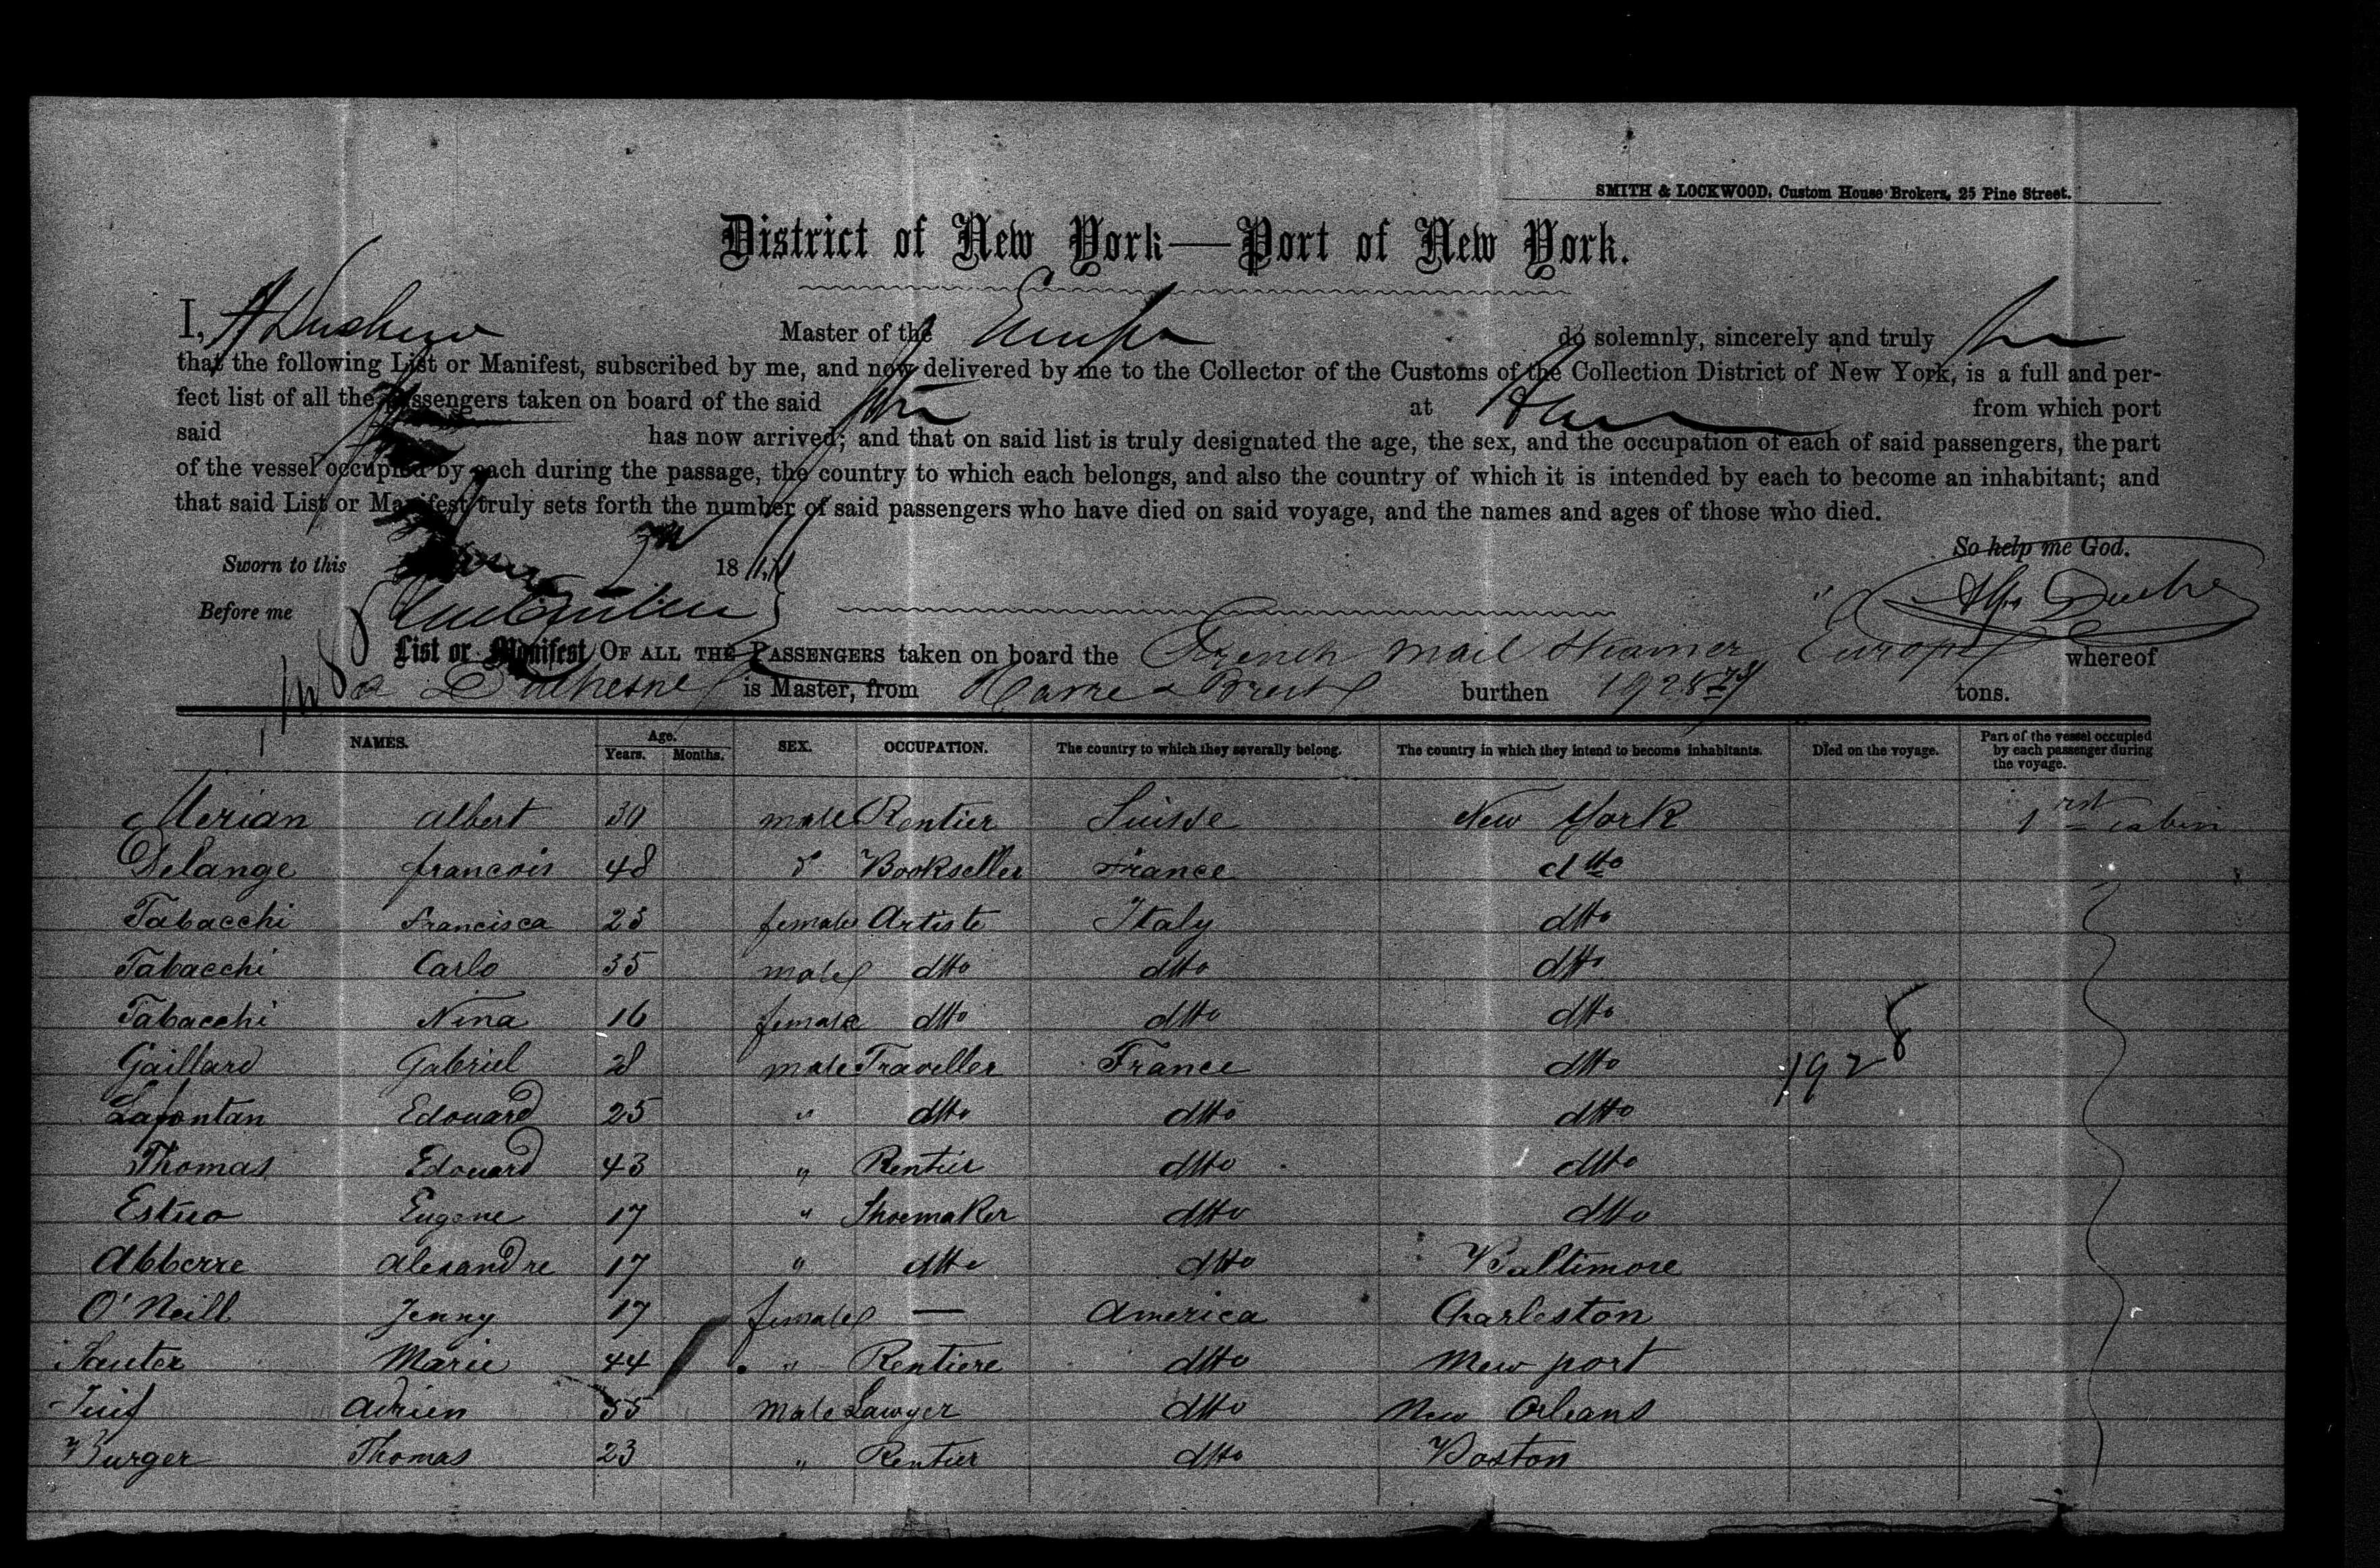 SMITH & LOCKWOOD, Custom House Brokers, 25 Pine Street.
District of New York—Port of New York.
I, A Duchesne Master of the Europe do solemnly, sincerely and truly
that the following List or Manifest, subscribed by me, and now delivered by me to the Collector of the Customs of the Collection District of New York, is a full and per-
fect list of all the passengers taken on board of the said at Havre from which port
said has now arrived; and that on said list is truly designated the age, the sex, and the occupation of each of said passengers, the part
of the vessel occupied by each during the passage, the country to which each belongs, and also the country of which it is intended by each to become an inhabitant; and
that said List or Manifest truly sets forth the number of said passengers who have died on said voyage, and the names and ages of those who died.
So help me God.
Sworn to this 18
Before me
List or Manifest OF ALL THE PASSENGERS taken on board the French mail Steamer Europe whereof
a Duchesne is Master, from Havre & Brest burthen 1928 tons.
NAMES. Age. Years. Months. SEX. OCCUPATION. The country to which they severally belong. The country in which they intend to become inhabitants. Died on the voyage. Part of the vessel occupied by each passenger during the voyage.
Merian albert 30 male Rentier Suisse New York 1rst cabin
Delange francois 48 do Bookseller France dtto
Tabacchi Francisca 25 female Artiste Italy dtto
Tabacchi Carlo 35 male dtto dtto dtto
Tabacchi Nina 16 female dtto dtto dtto
Gaillard Gabriel 28 male Traveller France dtto 1928
Lafontan Edouard 25 " dtto dtto dtto
Thomas Edouard 43 " Rentier dtto dtto
Estuo Eugene 17 " Shoemaker dtto dtto
Abberre alexandre 17 " dtto dtto Baltimore
O'Neill Jenny 17 female — america Charleston
Sauter Marie 44 " Rentiere dtto New port
Juif adrien 55 male Lawyer dtto New Orleans
Burger Thomas 23 " Rentier dtto Boston